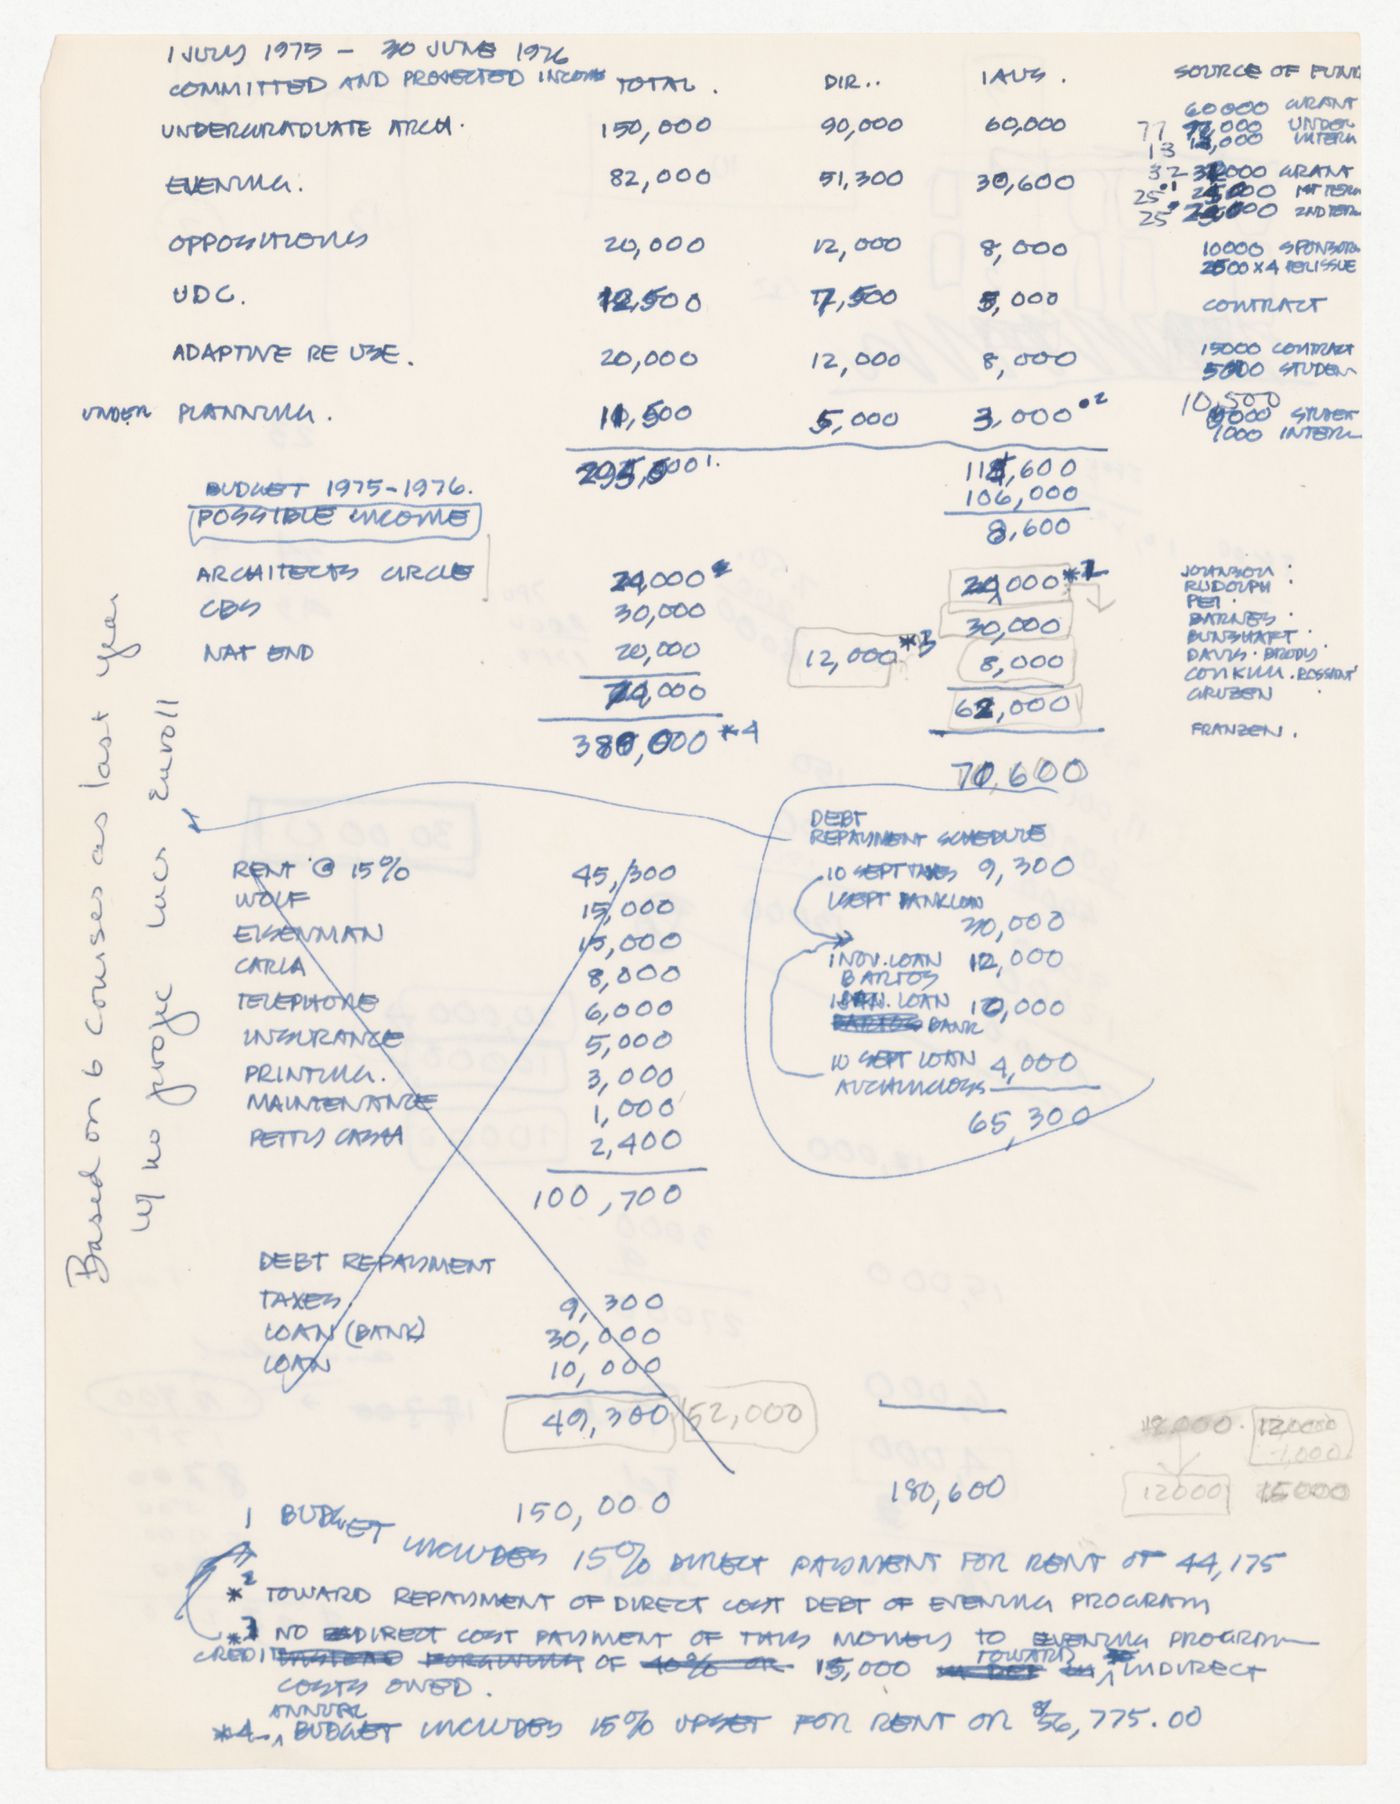 1 JULY 1975 – 30 JUNE 1976
COMMITTED AND PROJECTED INCOME TOTAL. DIR.. IAUS. SOURCE OF FUND
UNDERGRADUATE ARCH. 150,000 90,000 60,000 60000 GRANT
77 77,000 UNDER
13 13,000 INTERN
EVENING. 82,000 51,300 30,600 32 32000 GRANT
25 25000 1ST TERM
25 25000 2ND TERM
OPPOSITIONS 20,000 12,000 8,000 10000 SPONSORS
2500 X 4 PER ISSUE
UDC. 12,500 7,500 5,000 CONTRACT
ADAPTIVE RE USE. 20,000 12,000 8,000 15000 CONTRACT
5000 STUDEN
UNDER PLANNING. 11,500 5,000 3,000 •2 10,500
STUDENT
1000 INTERN
1. 114,600
BUDGET 1975-1976. 106,000
POSSIBLE INCOME 8,600
ARCHITECTS CIRCLE 24,000 24,000 *2 JOHNSON
RUDOLPH
PEI
CBS 30,000 30,000 BARNES
BUNSHAFT
NAT END 20,000 12,000 *3 8,000 DAVIS. BRODY
CONKLIN. ROSSANT
74,000 62,000 GRUZEN
380,000 *4 FRANZEN.
70,600
DEBT
REPAYMENT SCHEDULE
RENT @ 15% 45,300 10 SEPT TAXES 9,300
WOLF 15,000 1 SEPT BANK LOAN
30,000
EISENMAN 15,000 1 NOV. LOAN 12,000
CARLA 8,000 BARTOS
TELEPHONE 6,000 1 JAN. LOAN 10,000
BANK
INSURANCE 5,000 10 SEPT LOAN 4,000
PRINTING. 3,000 AUCHINCLOSS
MAINTENANCE 1,000 65,300
PETTY CASH 2,400
100,700
DEBT REPAYMENT
TAXES 9,300
LOAN (BANK) 30,000
LOAN 10,000
49,300 52,000 12000 12000
1,000
150,000 180,600 12000 15000
1 BUDGET INCLUDES 15% DIRECT PAYMENT FOR RENT OF 44,175
*2 TOWARD REPAYMENT OF DIRECT COST DEBT OF EVENING PROGRAM
*3 NO DIRECT COST PAYMENT OF THIS MONEY TO EVENING PROGRAM
CREDIT OF 40% OR 15,000 TOWARD INDIRECT
COSTS OWED.
*4 ANNUAL BUDGET INCLUDES 15% UPSET FOR RENT OR 56,775.00
Based on 6 Courses as last year
W/ no projec incr Enroll